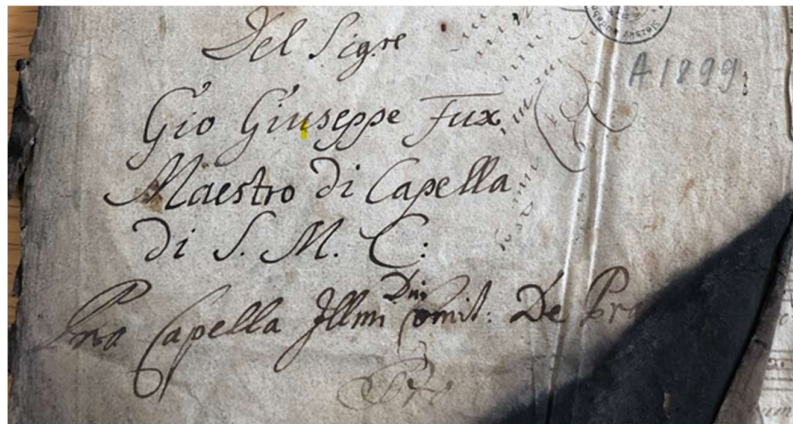 Del Sigre
A 1899.
Gio Giuseppe Fux
Maestro di Capella
di S. M. C:
Pro Capella Illmi Dni Comit: De